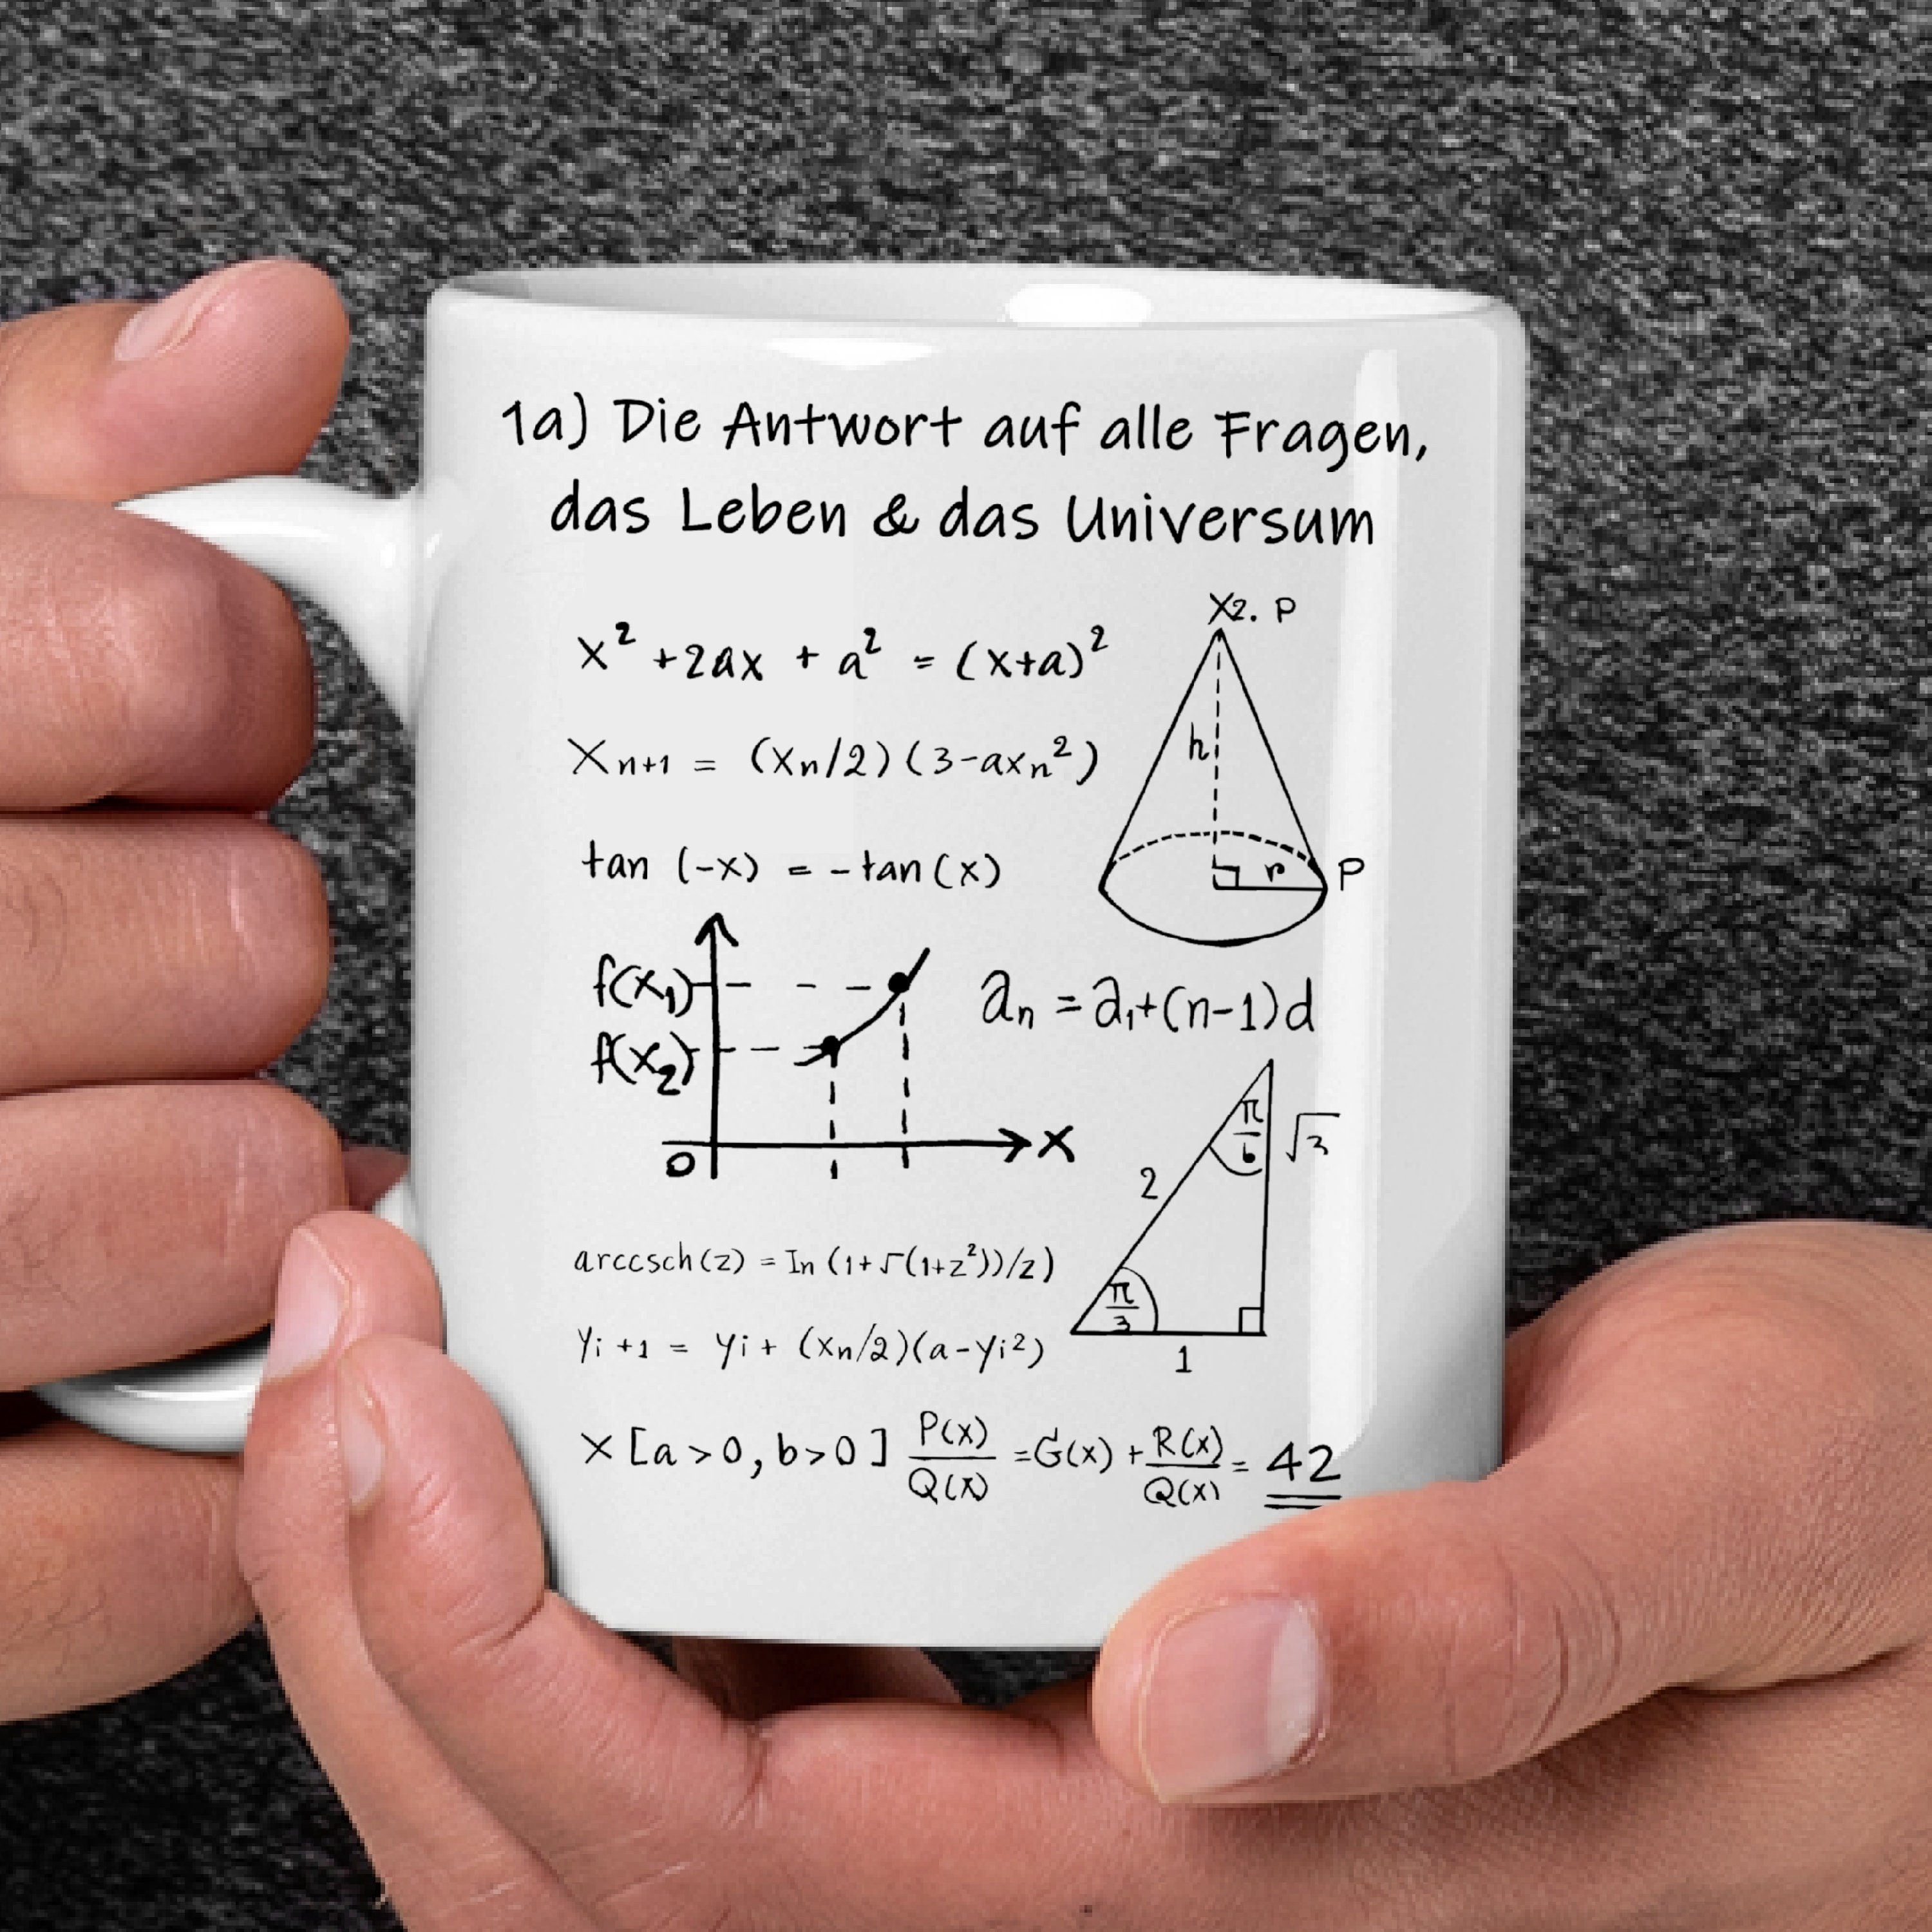 1a) Die Antwort auf alle Fragen,
das Leben & das Universum
x² +2ax + a² = (x+a)²
X2. P
Xn+1 = (Xn/2)(3-axn²)
h
tan (-x) = -tan(x)
r P
f(x₁)
f(x₂)
0 X
an = a₁+(n-1)d
π/6 √3
2
π/3
1
arccsch(z) = In (1+√(1+z²))/z)
Yi +1 = Yi + (xn/2)(a-yi²)
X [a>0, b>0] P(x)/Q(x) =G(x) + R(x)/Q(x) = 42